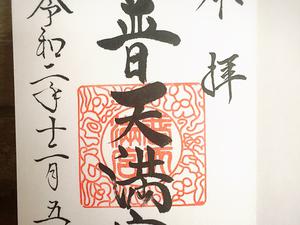 奉拝
普天満宮
令和二年十一月五